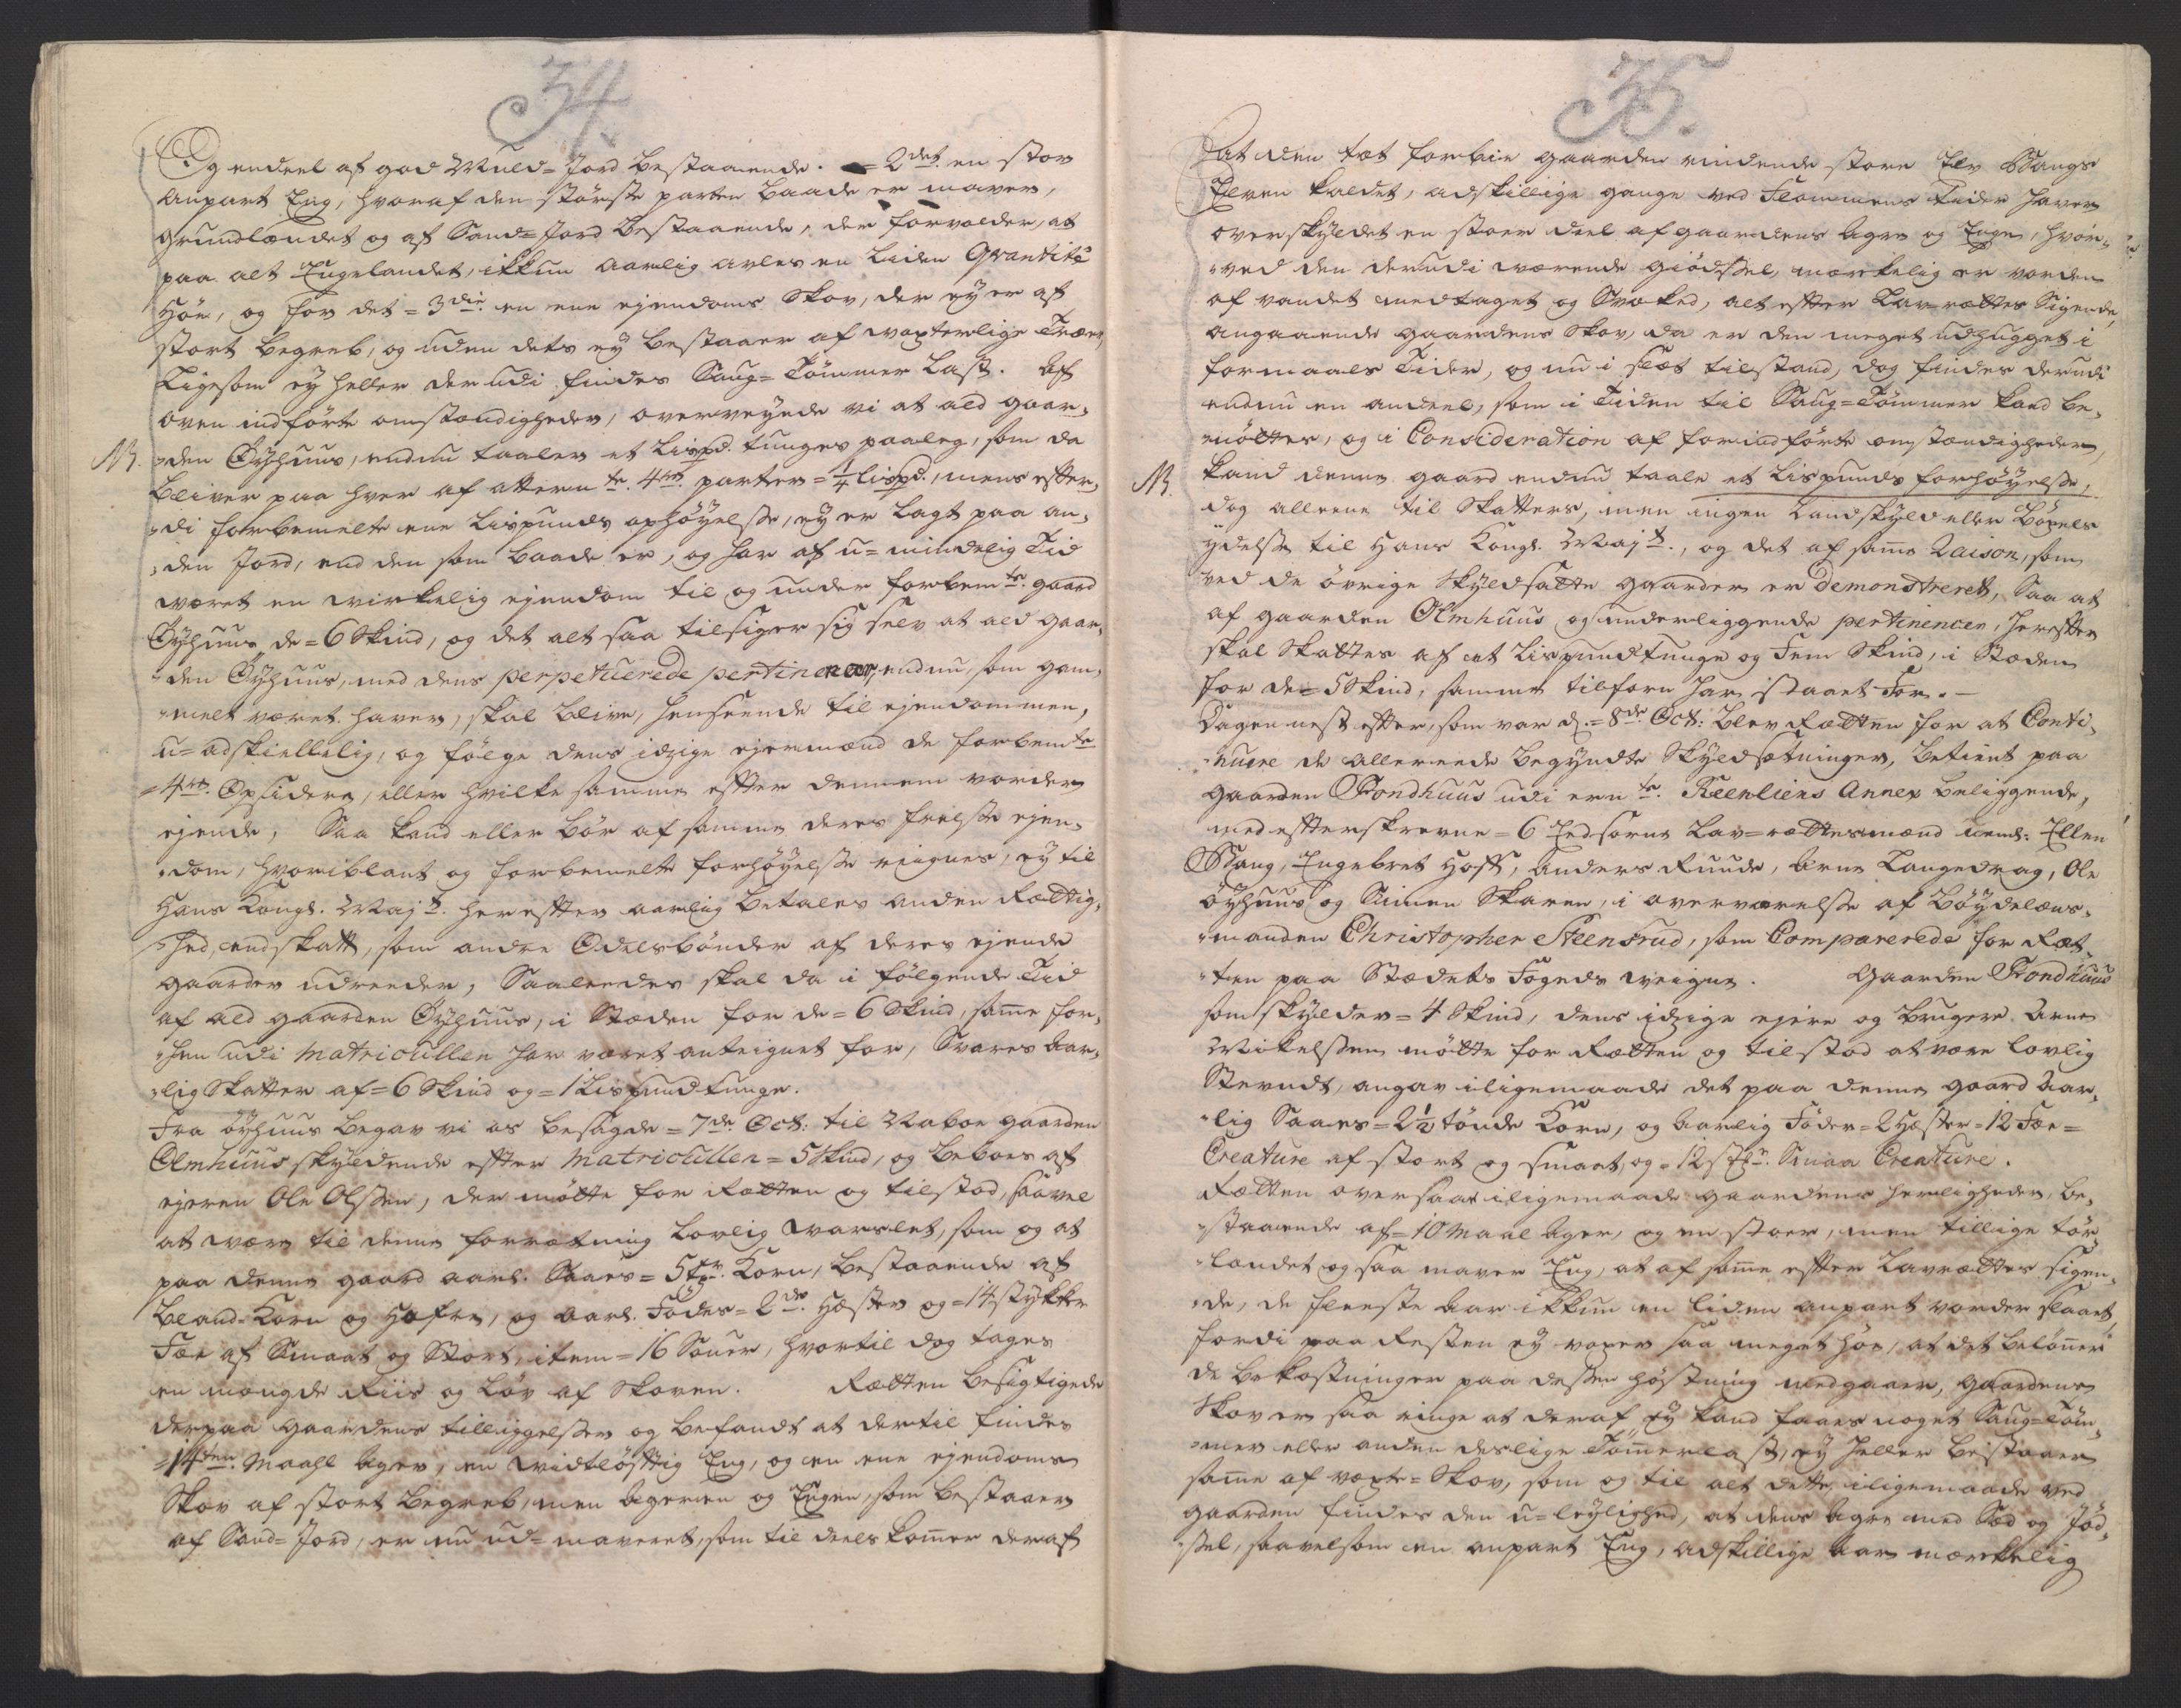 34.
Og endeel af god Muld-Jord bestaaende. = 2det en stor
anpart Eng, hvoraf den største parten baade er maver,
grundlændet og af Sand-Jord bestaaende, der forvolder, at
paa alt Engelandet, ikkun aarlig avles en liden Qvantité
Høe, og for det = 3die en eene ejendoms Skov, der ey er af
stort begreb, og uden dets ey bestaaer af voxterlige Træer,
ligesom ey heller der udi findes Saug-Tømmer Last. Af
oven indførte omstændigheder, overveyede vi at ald gaar-
NB. den Øyhuus, endnu taaler et Lispd. tunges paaleg, som da
bliver paa hver af attern te 4re parter = 1/4 Lispd., mens efter-
di forbemelte eene Lispunds ophøyelsse, ey er lagt paa an-
den Jord, end den som baade er, og har af u-mindelig Tid
været en wirkelig ejendom til og under forbemte gaard
Øyhuus de = 6 Skind, og det alt saa tilsiger sig selv at ald gaar-
den Øyhuus, med dens perpetuerede pertinencer, endnu, som gam-
melt været haver, skal blive, henseende til ejendommen,
u-adskiellelig, og følge dens idzige ejermænd de forbemte
= 4re Opsidere, eller hvilke samme effter dennem vorder
ejende, Saa kand eller bør af samme deres frelsse ejen-
dom, hvoriblant og forbemelte forhøyelsse reignes, ey til
Hans Kongl. Mayt. hereffter aarlig betales anden Rettig-
hed, end skatt, som andre Odelsbønder af deres ejende
gaarder udreeder, Saaleedes skal da i følgende Tid
af ald gaarden Øyhuus, i Stæden for de = 6 Skind, same for-
hen udi Matricullen har været anteignet for, Svares aar-
lig Skatter af = 6 Skind og = 1 Lispundtunge.
Fra Øyhuus begav vi os besagde = 7de Oct: til Naboe gaarden
Olmhuus skyldende effter Matricullen = 5 Skind, og beboes af
ejeren Ole Olssen, der møtte for Retten og tilstod, saavel
at være til denne forretning lovlig varslet, som og at
paa denne gaard aarl. Saaes = 5 tdr. Korn, bestaaende af
bland-Korn og Hafre, og aarl. Fødes = 2de Hæster og = 14 stykker
Fæe af Smaat og Stort, item = 16 Souer, hvortil dog tages
en mængde Riis og Løv af Skoven. Retten besigtigede
derpaa gaardens tilliggelsser og befandt at dertil findes
= 14ten Maahl ager, en vidtløfftig Eng, og en eene ejendoms
Skov af stort begreb, men ageren og Engen, som bestaaer
af Sand-Jord, er nu ud-maveret, som til deels komer deraf
35.
At den tæt forbie gaarden rindende store Elv Sangs
Elven kaldet, adskillige gange ved Flommens Tider haver
overskyldet en stoer deel af gaardens agre og Enge, hvor-
ved den derudi værende giødssel, mærkelig er vorden
af vandet medtaget og Svæked, alt effter Lav-rettes Sigende,
angaaende gaardens Skov, da er den meget udhugget i
formaals Tider, og nu i slæt tilstand, dog findes derudi
endnu en andeel, som i Tiden til Saug-Tømmer kand be-
nøttes, og i Consideration af forindførte omstændigheder,
NB. kand denne gaard endnu taale et Lispunds forhøyelsse,
dog alleene til Skatters, men ingen Landskyld eller Bøxels
ydelsse til Hans Kongl. Mayt., og det af same Raison, som
ved de øvrige Skyldsatte gaarder er demonstreret, Saa at
af gaarden Olmhuus og underliggende pertinencer, hereffter
skal Skattes af et Lispundtunge og Fem Skind, i Stæden
for de = 5 Skind, samme tilforn har staaet For. –
Dagen nest effter, som var d. = 8de Oct: blev Retten for at Conti-
nuere de allereede begyndte Skyldsætninger, betient paa
gaarden Fondhuus udi ern te Reenliens Annex beliggende,
med effterskrevne = 6 Eedsorne Lav-rettesmænd neml: Ellen
Sang, Engebret Hoff, Anders Ruude, Arne Langedrag, Ole
Øyhuus og Simen Skaren, i overværelsse af Bøydelæns-
manden Christopher Steensrud, som Comparerede for Ret-
ten paa Stædets Fogeds weigne. Gaarden Fondhuus
som skylder = 4 Skind, dens idzige ejere og brugere Arne
Mikelssen møtte for Retten og tilstod at være lovlig
Stevndt, angav iligemaade det paa denne gaard aar-
lig Saaes = 2 1/2 tønde Korn, og aarlig Føder = 2 Hæster = 12 Fæe =
Creature af stort og smaat, og = 12 stkr. Smaa Creature.
Retten oversaae iligemaade gaardens herligheder, be-
staaende af = 10 Maal ager, og en stoer, men tillige tør-
landet og saa maver Eng, at af same effter Lavrettes sigen-
de, de fleeste aar ikkun en liden anpart vorder slaaet,
fordi paa Resten ey voxer saa meget Høe, at det beløner
de bekostninger paa dessen høstning medgaaer, gaardens
Skov er saa ringe at deraf ey kand faaes noget Saug-Tøm-
mer eller anden deslige Tømerlast, ey heller bestaaer
same af voxte-Skov, som og til alt dette, iligemaade ved
gaarden findes den u-leylighed, at dens agre med Sæd og Jød-
sel, saavelsom en anpart Eng, adskillige aar mærkelig